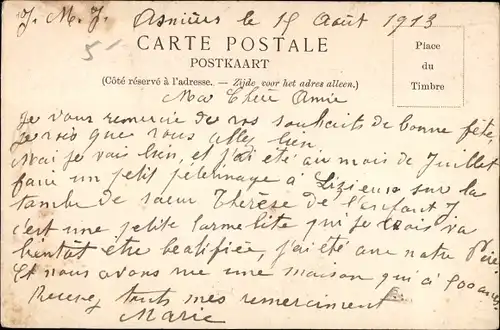 J. M. J. Asnières le 15 Août 1913
5
CARTE POSTALE
POSTKAART
(Côté réservé à l'adresse. — Zijde voor het adres alleen.)
Place
du
Timbre
Ma Chère Amie
Je vous remercie de vos souhaits de bonne fête,
je vois que vous allez bien.
Moi je vais bien, et j'ai été au mois de Juillet
faire un petit pèlerinage à Lizieux sur la
tombe de sœur Thérèse de l'enfant J
c'est une petite carmelite qui je crois va
bientôt être beatifiée, j'ai été avec notre
Et nous avons vue une maison qui à 900 ans,
Recevez touts mes remerciment
Marie